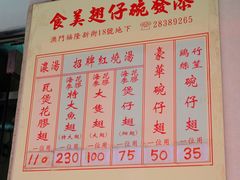 食美翅仔碗發添
澳門福隆新街18號地下 ☎28389265
濃湯
招牌紅燒湯
瓦煲花膠翅
一位用
110
海參花膠特大魚翅
一位用
230
大隻翅
一位用
100
煲仔翅
一位用
75
豪華碗仔翅
一位用
50
竹笙雞絲碗仔翅
一位用
35